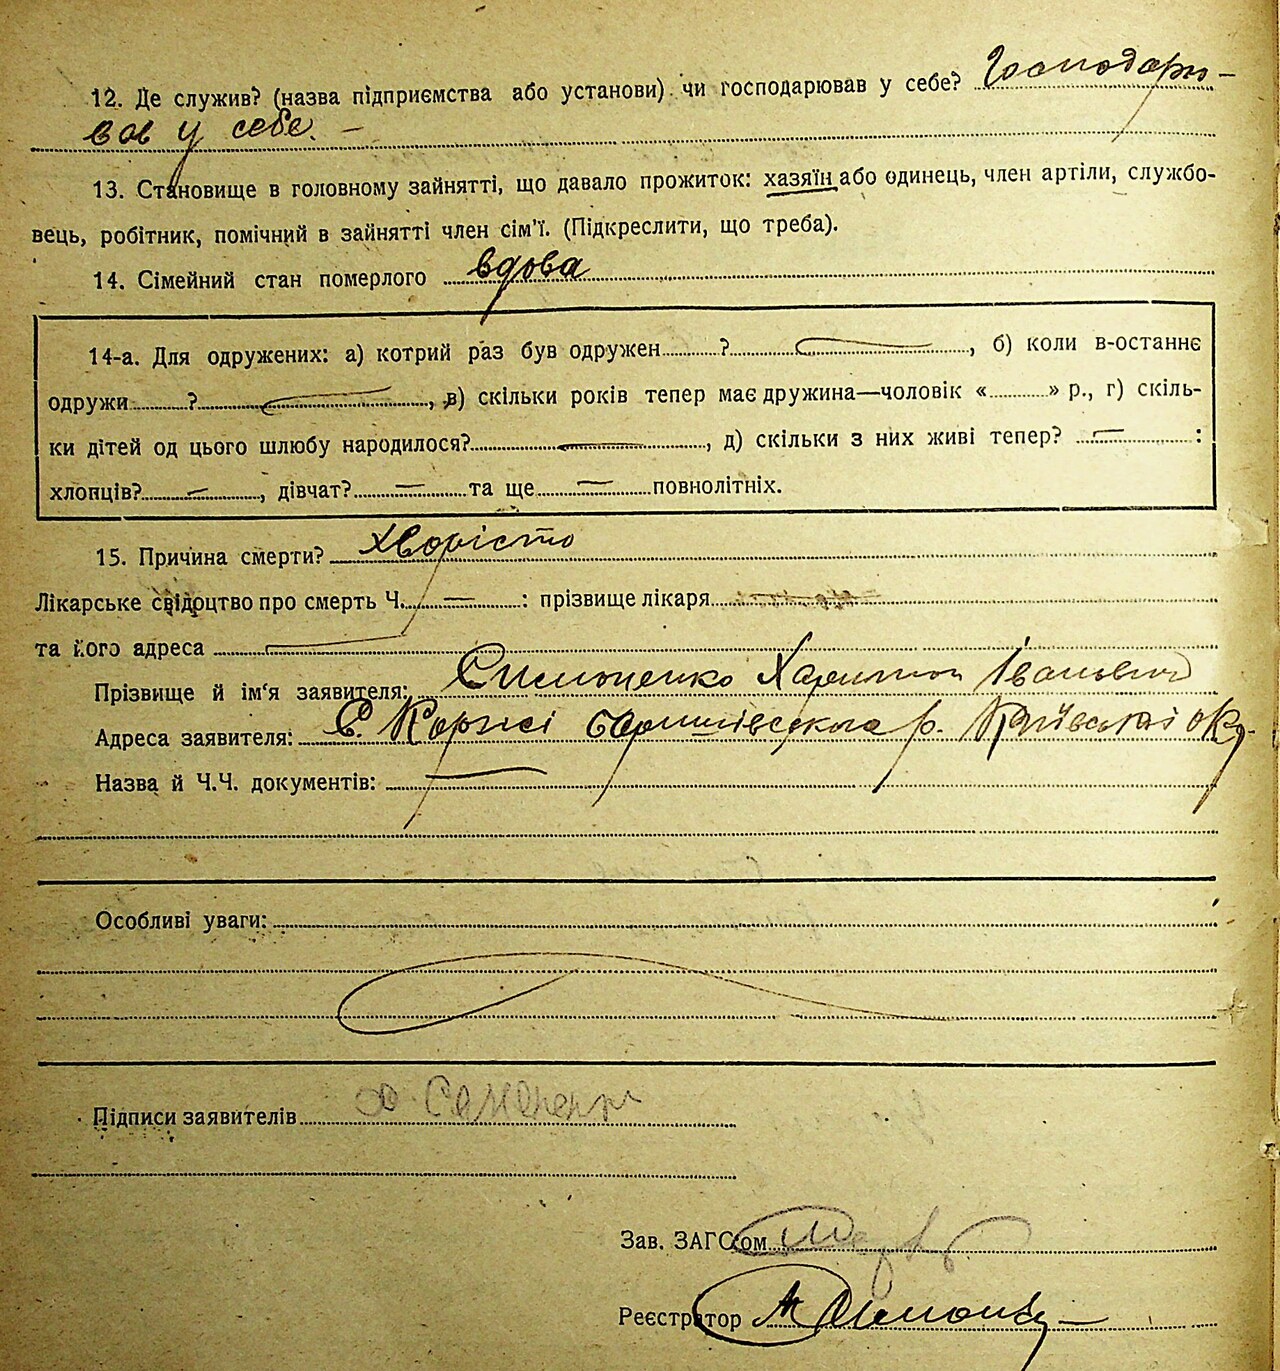 12. Де служив? (назва підприємства або установи) чи господарював у себе? Господарю-
вав у себе. –
13. Становище в головному зайнятті, що давало прожиток: хазяїн або одинець, член артіли, службо-
вець, робітник, помічний в зайнятті член сім'ї. (Підкреслити, що треба).
14. Сімейний стан померлого вдова
14-а. Для одружених: а) котрий раз був одружен ? , б) коли в-останнє
одружи ? , в) скільки років тепер має дружина—чоловік « » р., г) скіль-
ки дітей од цього шлюбу народилося? — , д) скільки з них живі тепер? — :
хлопців? — , дівчат? — та ще — повнолітніх.
15. Причина смерти?
Лікарське свідоцтво про смерть Ч. — : прізвище лікаря
та його адреса —
Прізвище й ім'я заявителя: Симоненко Харитон Іванович
Адреса заявителя: с. Коржі Баришівського р. Київської окр.
Назва й Ч.Ч. документів: —
Особливі уваги:
Підписи заявителів Х Симоненко
Зав. ЗАГС'ом
Реєстратор